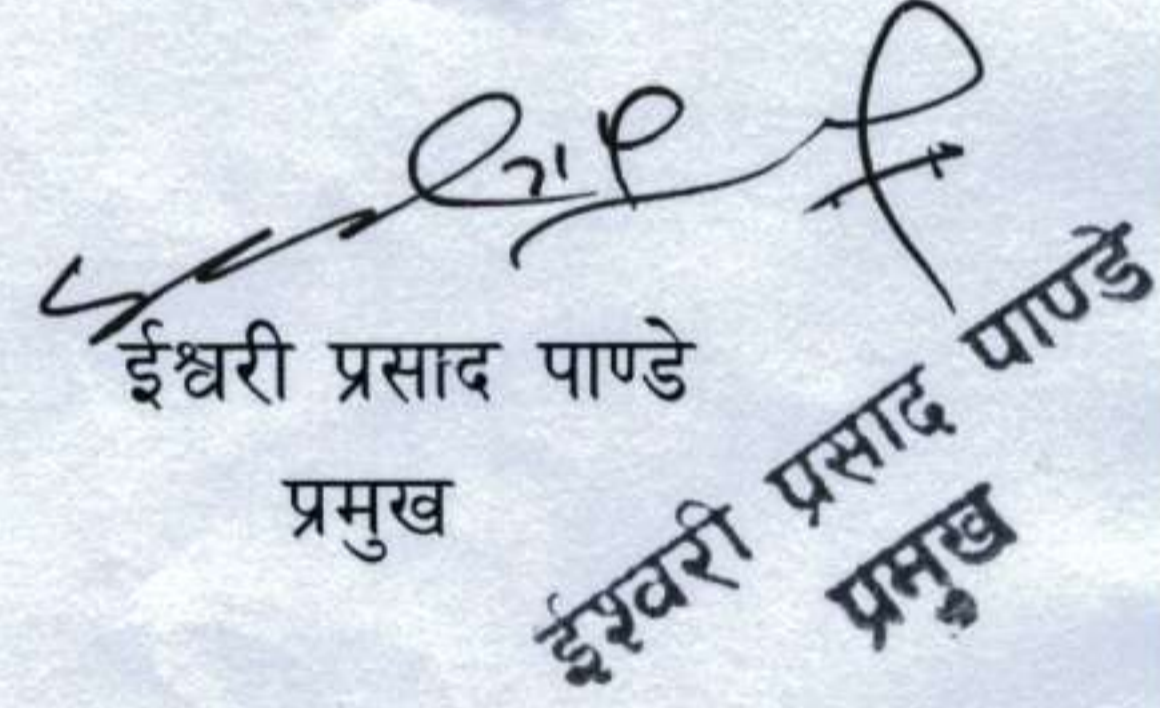 ईश्वरी प्रसाद पाण्डे
प्रमुख
ईश्वरी प्रसाद पाण्डे
प्रमुख